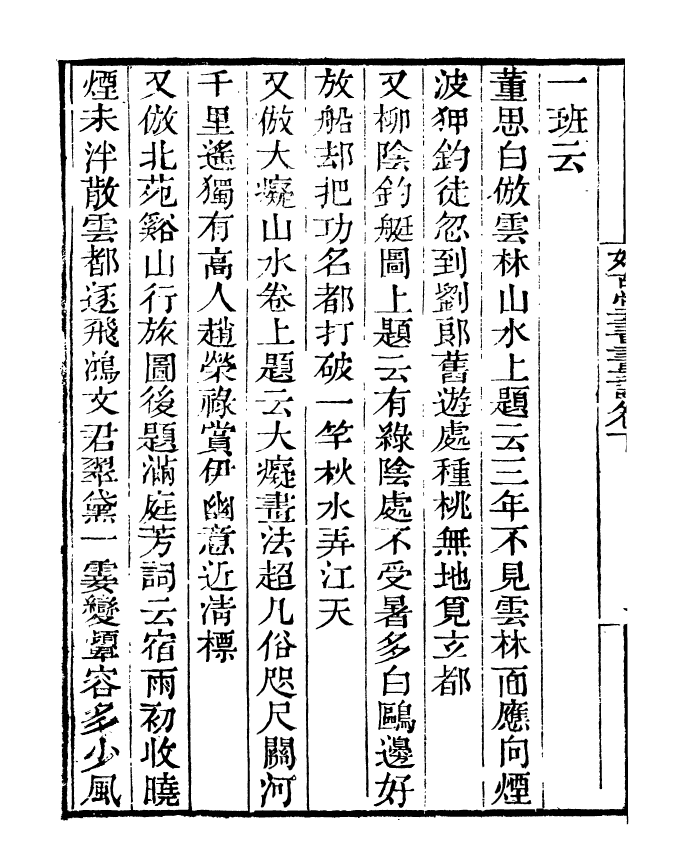 一班云
董思白倣雲林山水上題云三年不見雲林面應向煙
波狎釣徒忽到劉郎舊遊處種桃無地覓玄都
又柳陰釣艇圖上題云有綠陰處不受暑多白鷗邊好
放船却把功名都打破一竿秋水弄江天
又倣大癡山水卷上題云大癡畫法超凡俗咫尺關河
千里遙獨有高人趙榮祿賞伊幽意近淸標
又倣北苑谿山行旅圖後題滿庭芳詞云宿雨初收曉
煙未泮散雲都逐飛鴻文君翠黛一霎變顰容多少風